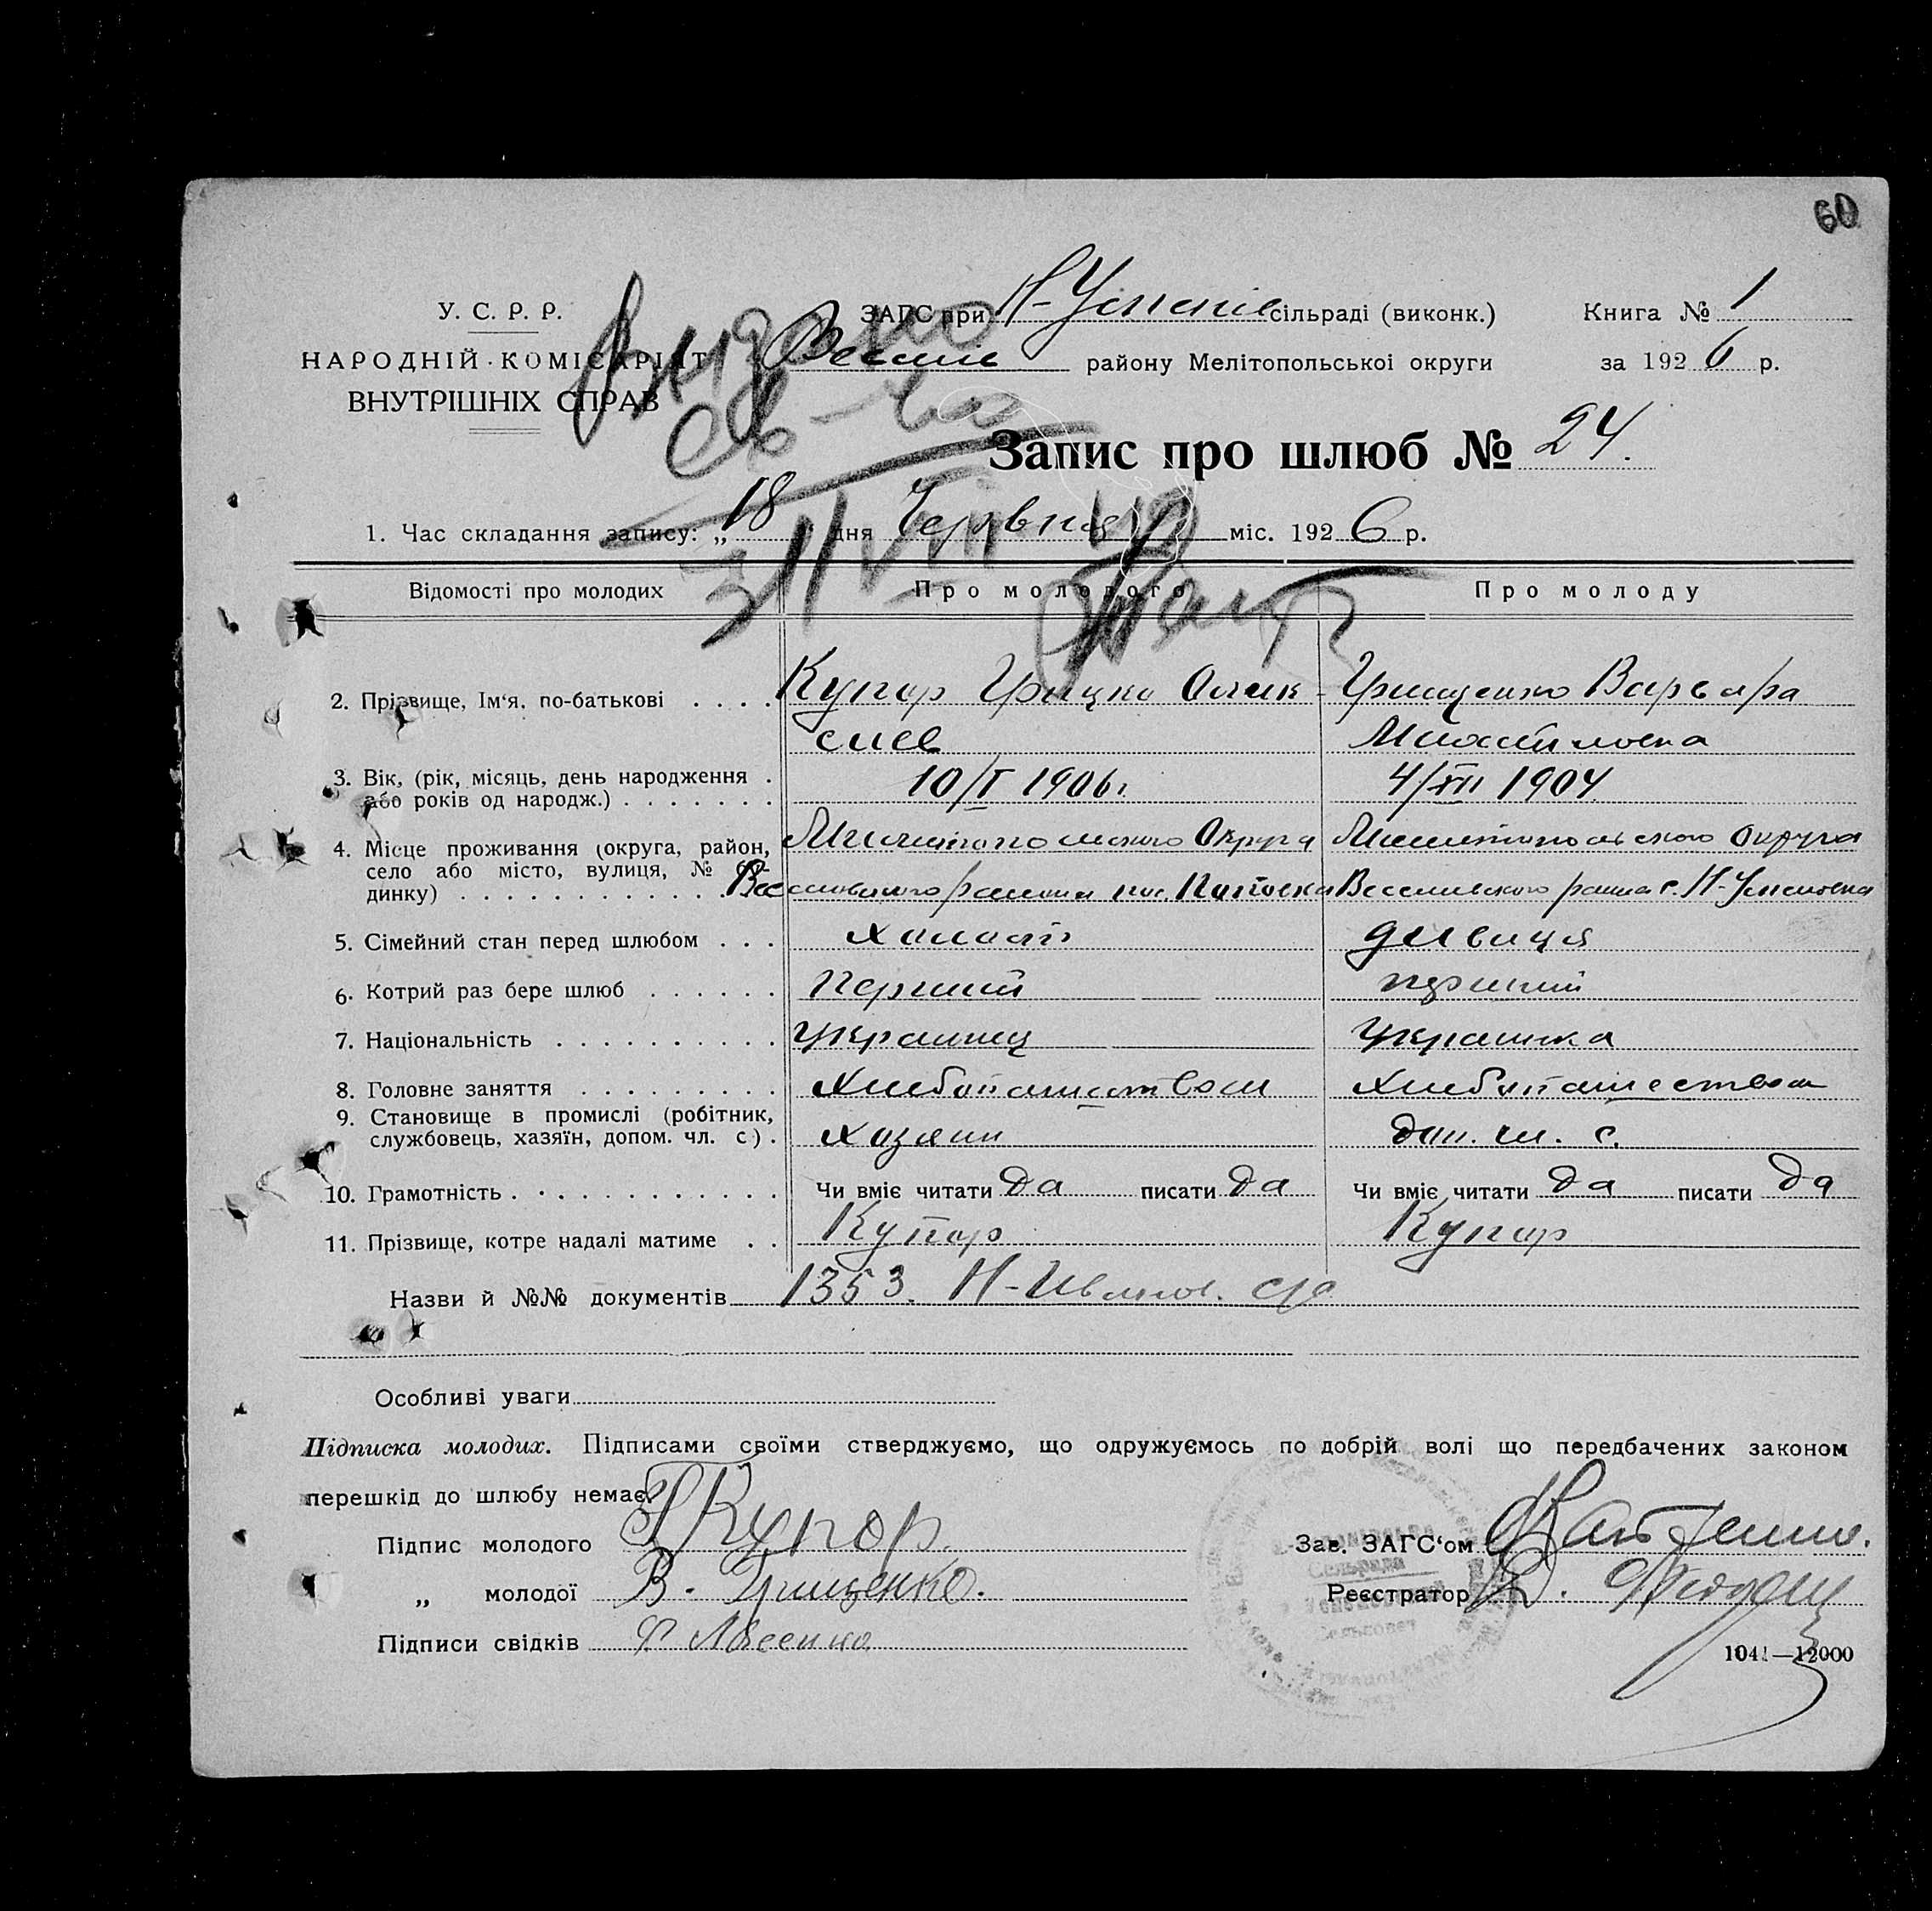 60
У. С. Р. Р.
НАРОДНІЙ КОМІСАРІЯТ
ВНУТРІШНІХ СПРАВ
ЗАГС при сільраді (виконк.)
району Мелітопольської округи
Книга № 1
за 1926 р.
Видано
св-во
Запис про шлюб № 24.
1. Час складання запису: „18 дня Червня міс. 1926 р.
Відомості про молодих Про молодого Про молоду
2. Прізвище, Ім‘я, по-батькові . . . . Купар Грицко Олек- Грищенко Варвара
сиев
3. Вік, (рік, місяць, день народження .
або років од народж.) . . . . . . . 10/I 1906 г. 4/XII 1904
4. Місце проживання (округа, район, Округа Округа
село або місто, вулиця, № бу-
динку) . . . . . . . . . . . . района пос. Веселивского р. с. Н-Успеновка
5. Сімейний стан перед шлюбом . . . холост дивиця
6. Котрий раз бере шлюб . . . . . . Перший перший
7. Національність . . . . . . . . . . Украинец Украинка
8. Головне заняття . . . . . . . . . Хлибопашеством Хлибопашеством
9. Становище в промислі (робітник,
службовець, хазяїн, допом. чл. с.) . Хазяин доп. чл. с.
10. Грамотність . . . . . . . . . . . Чи вміє читати да писати да Чи вміє читати да писати да
11. Прізвище, котре надалі матиме . . Купар Купар
Назви й №№ документів 1353. Н-Иванов. с/с
Особливі уваги
Підписка молодих. Підписами своїми стверджуємо, що одружуємось по добрій волі що передбачених законом
перешкід до шлюбу немає.
Підпис молодого Г Купор Зав. ЗАГС‘ом
„ молодої В. Грищенко. Реєстратор
Підписи свідків
1041—12000